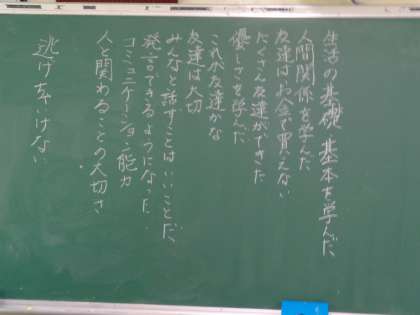 生活の基礎 基本を学んだ
人間関係を学んだ
友達はお金で買えない
たくさん友達ができた
優しさを学んだ
これが友達かな
友達は大切
みんなと話すことはいいことだ、
発言できるようになった
コミュニケーション能力
人と関わることの大切さ
逃げちゃいけない